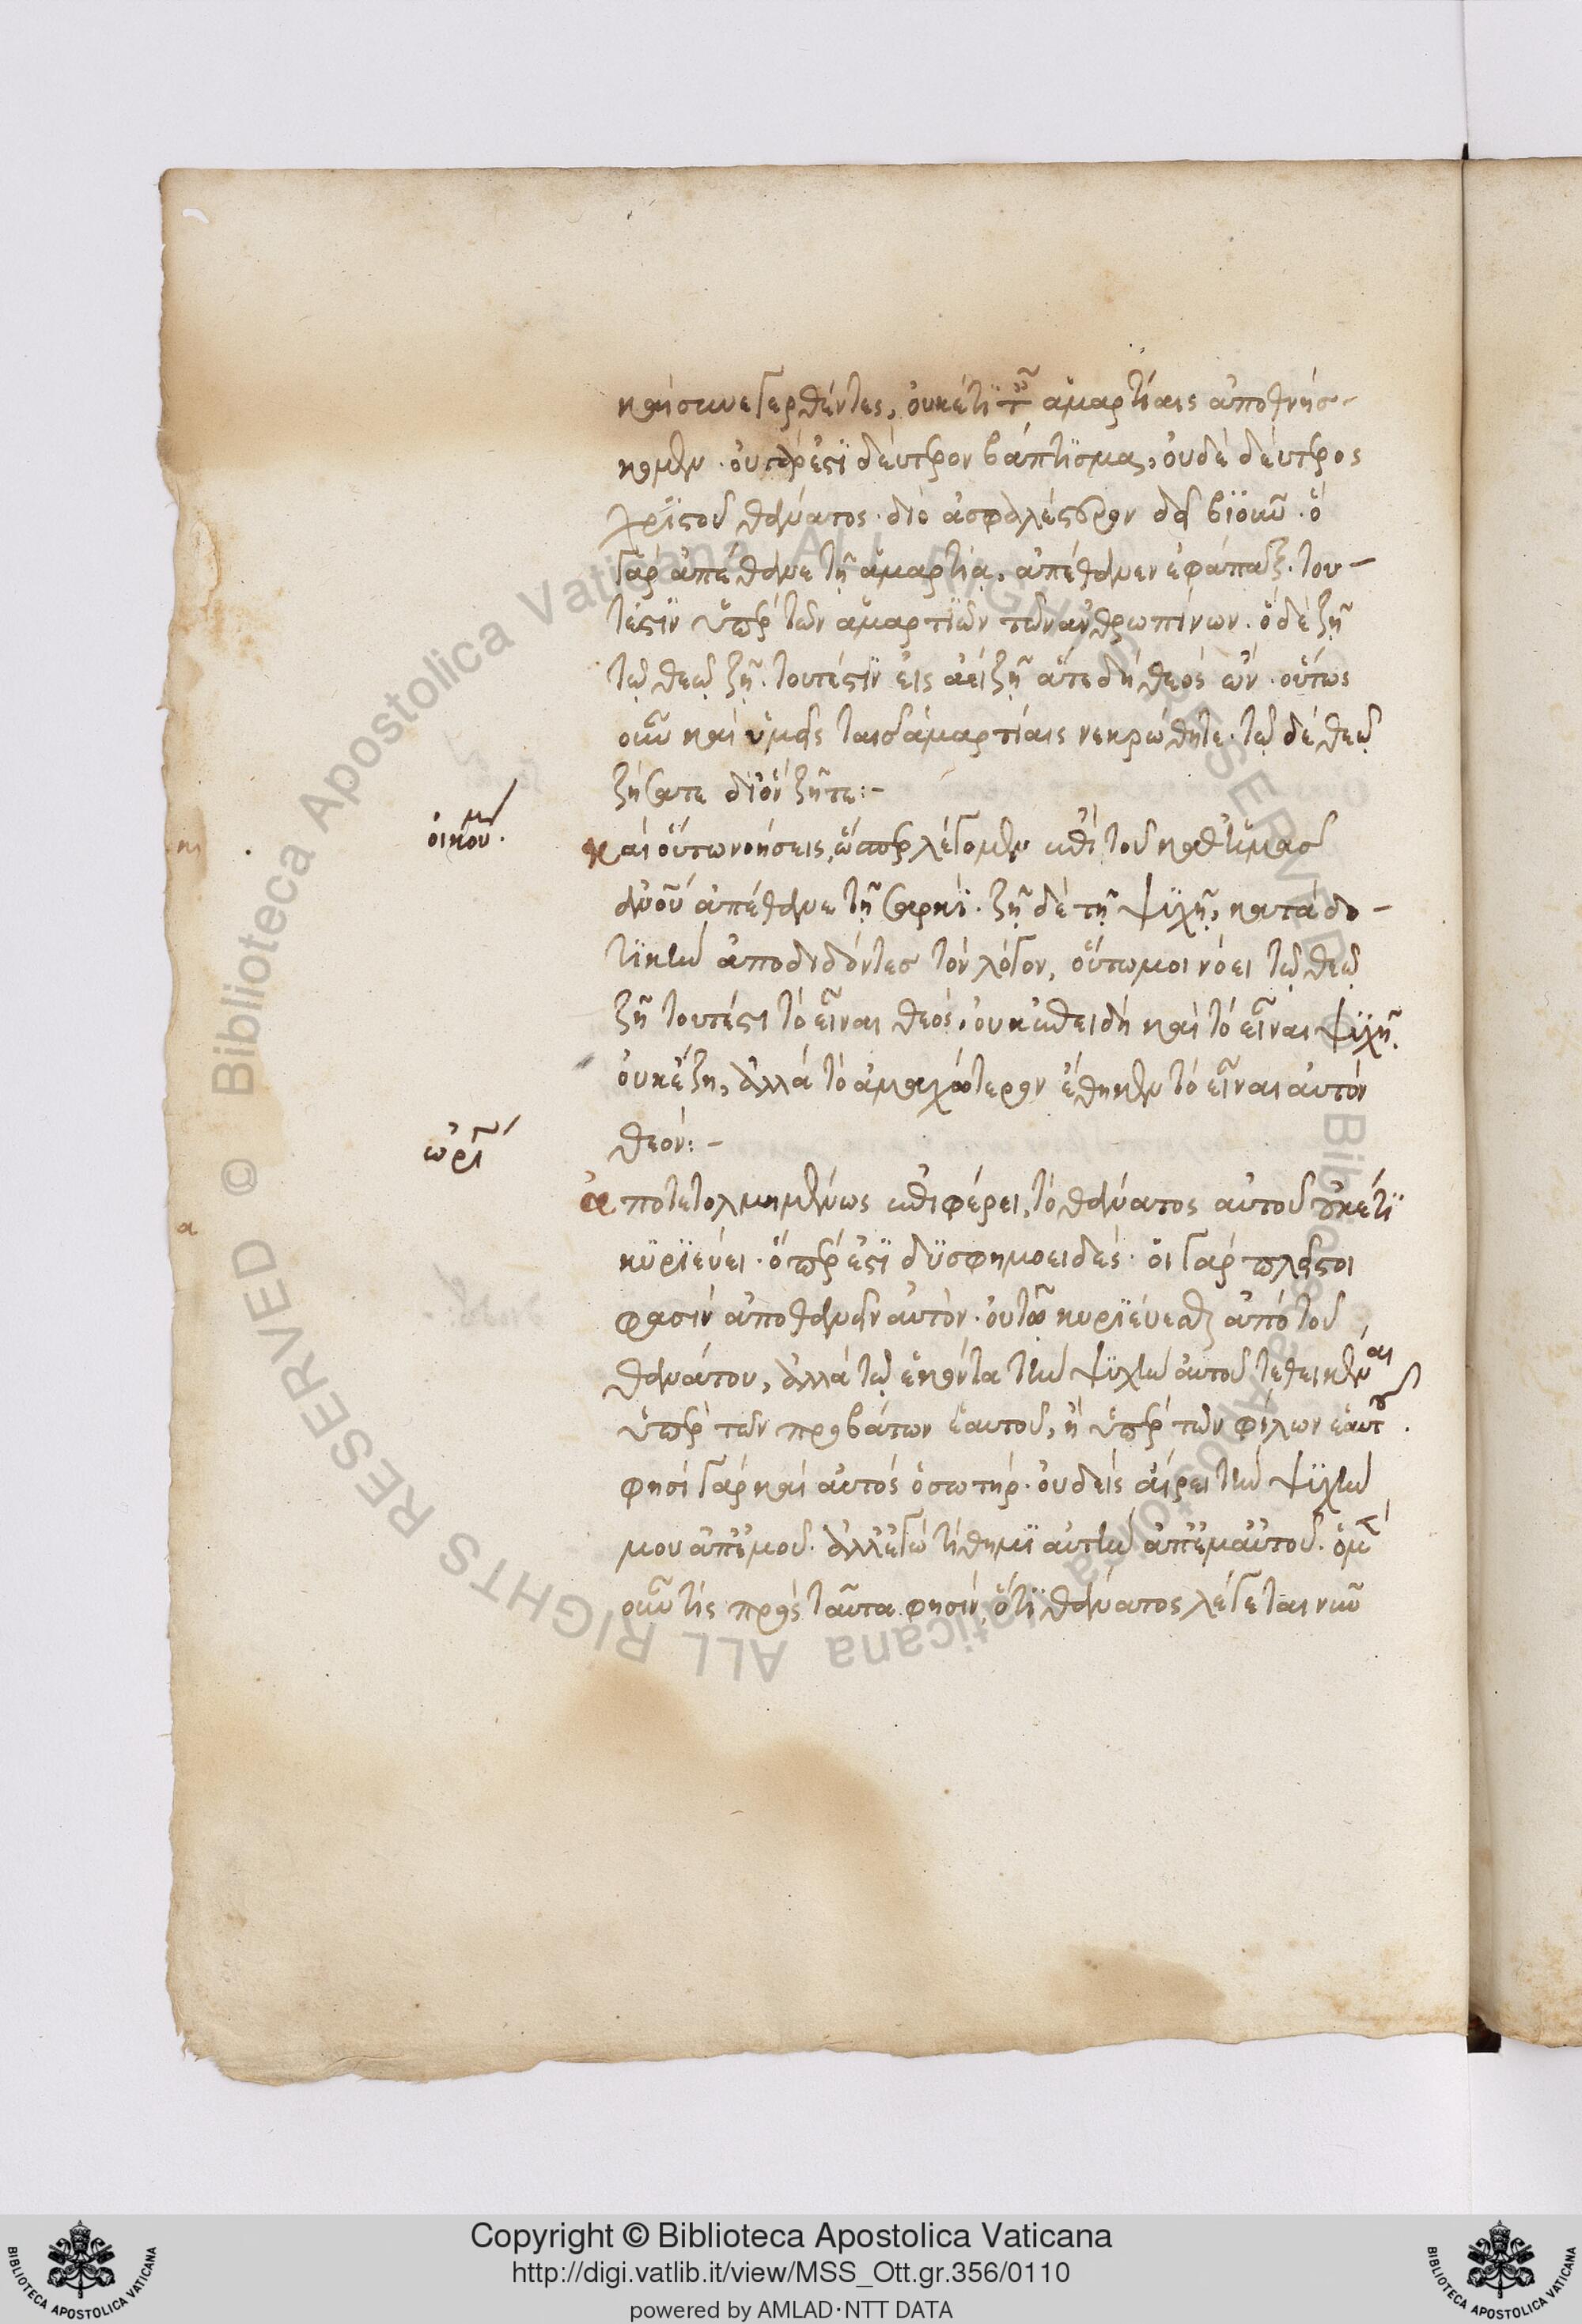 καὶ συνεγερθέντες, οὐκέτι τ(ῶν) ἁμαρτίαις ἀποθνήσ-
κομεν. οὐ γάρ ἐστι δεύτερον βάπτισμα, οὐδὲ δεύτερος
χριστοῦ θάνατος. διὸ ἀσφαλέστερον δεῖ βιοῦν. ὃ
γὰρ ἀπέθανε τῇ ἁμαρτίᾳ, ἀπέθανεν ἐφάπαξ. του-
τέστιν ὑπὲρ τῶν ἁμαρτιῶν τῶν ἀνθρωπίνων. ὃ δὲ ζῇ
τῷ θεῷ ζῇ. τουτέστιν εἰς ἀεὶ ζῇ ἅτε δὴ θεὸς ὤν. οὕτως
οὖν καὶ ὑμεῖς ταῖς ἁμαρτίαις νεκρώθητε. τῷ δὲ θεῷ
ζήσατε δι' ὃν ζῆτε:-
οἰκουμ
καὶ οὕτω νοήσεις, ὥσπερ λέγομεν ἐπὶ τοῦ καθ' ἡμᾶς
ἀνοῦ ἀπέθανε τῇ σαρκί. ζῇ δὲ τῇ ψυχῇ, κατὰ δο-
τικὴν ἀποδιδόντες τὸν λόγον, οὕτω μοι νόει τῷ θεῷ
ζῇ τουτέστι τὸ εἶναι θεός. οὐκ ἐπειδὴ καὶ τὸ εἶναι ψυχῇ
οὐκ ἔζη, ἀλλὰ τὸ ἀμαχώτερον ἔθηκεν τὸ εἶναι αὐτὸν
θεόν:-
ὠρι
ἀποτετολμημένως ἐπιφέρει, τὸ θάνατος αὐτοῦ οὐκέτι
κυριεύει. ὅπερ ἐστὶ δυσφημοειδές. οἱ γὰρ πλεῖστοι
φασὶν ἀποθανεῖν αὐτόν. οὐ τῷ κυριεύεσθαι ἀπὸ τοῦ
θανάτου, ἀλλὰ τῷ ἑκόντα τὴν ψυχὴν αὐτοῦ τεθεικέναι
ὑπὲρ τῶν προβάτων ἑαυτοῦ, ἢ ὑπὲρ τῶν φίλων ἑαυτοῦ.
φησὶ γὰρ καὶ αὐτὸς ὁ σωτήρ. οὐδεὶς αἴρει τὴν ψυχήν
μου ἀπ' ἐμοῦ. ἀλλ' ἐγὼ τίθημι αὐτὴν ἀπ' ἐμαυτοῦ.
οὖν τις πρὸς ταῦτα φησίν, ὅτι θάνατος λέγεται νῦν
Copyright © Biblioteca Apostolica Vaticana
http://digi.vatlib.it/view/MSS_Ott.gr.356/0110
powered by AMLAD·NTT DATA